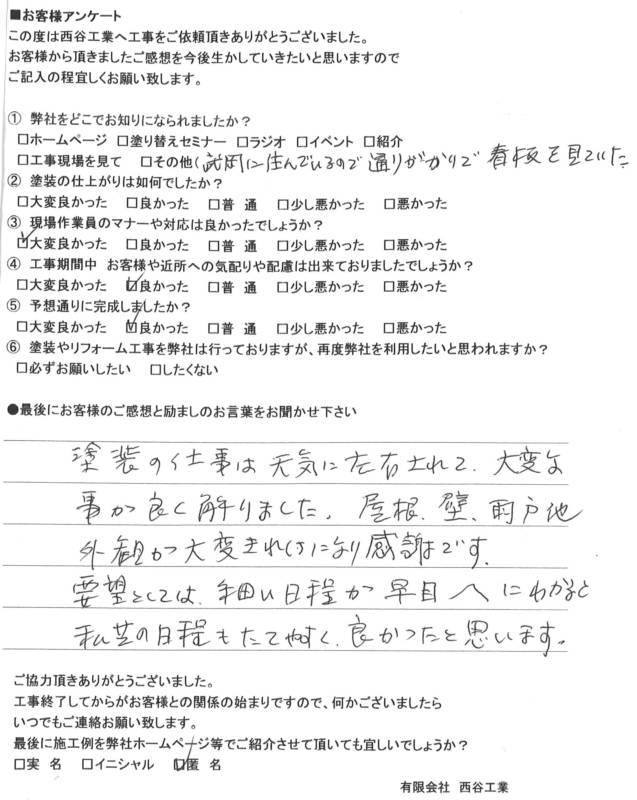 ■お客様アンケート
この度は西谷工業へ工事をご依頼頂きありがとうございました。
お客様から頂きましたご感想を今後生かしていきたいと思いますので
ご記入の程宜しくお願い致します。
① 弊社をどこでお知りになられましたか？
□ホームページ □塗り替えセミナー □ラジオ □イベント □紹介
□工事現場を見て □その他(武岡に住んでいるので通りがかりで看板を見ていた
② 塗装の仕上がりは如何でしたか？
□大変良かった □良かった □普 通 □少し悪かった □悪かった
③ 現場作業員のマナーや対応は良かったでしょうか？
☑大変良かった □良かった □普 通 □少し悪かった □悪かった
④ 工事期間中 お客様や近所への気配りや配慮は出来ておりましたでしょうか？
□大変良かった ☑良かった □普 通 □少し悪かった □悪かった
⑤ 予想通りに完成しましたか？
□大変良かった ☑良かった □普 通 □少し悪かった □悪かった
⑥ 塗装やリフォーム工事を弊社は行っておりますが、再度弊社を利用したいと思われますか？
□必ずお願いしたい □したくない
●最後にお客様のご感想と励ましのお言葉をお聞かせ下さい
塗装の仕事は天気に左右されて、大変な
事が良く解りました。屋根、壁、雨戸他
外観が大変きれいになり感謝です。
要望としては、細い日程が早目へにわかると
私共の日程もたてやすく、良かったと思います。
ご協力頂きありがとうございました。
工事終了してからがお客様との関係の始まりですので、何かございましたら
いつでもご連絡お願い致します。
最後に施工例を弊社ホームページ等でご紹介させて頂いても宜しいでしょうか？
□実 名 □イニシャル ☑匿 名
有限会社 西谷工業